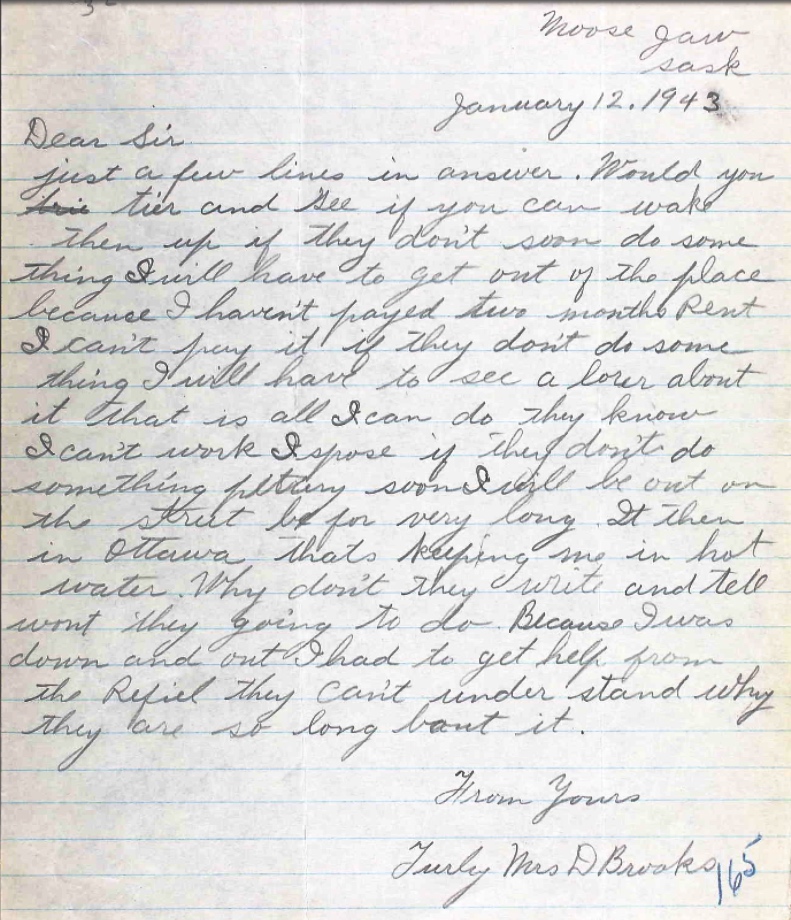 Moose Jaw
Sask
January 12. 1943
Dear Sir
just a few lines in answer. Would you
trie tier and See if you can wake
then up if they don't soon do some
thing I will have to get out of the place
because I haven't payed two months Rent
I can't pay it if they don't do some
thing I will have to see a lorer about
it that is all I can do they know
I can't work I spose if they don't do
something soon I will be out on
the street be for very long. It then
in Ottawa thats keeping me in hot
water. Why don't they write and tell
wont they going to do. Because I was
down and out I had to get help from
the Refiel they can't under stand why
they are so long bout it.
From Yours
Turly Mrs D Brooks
165